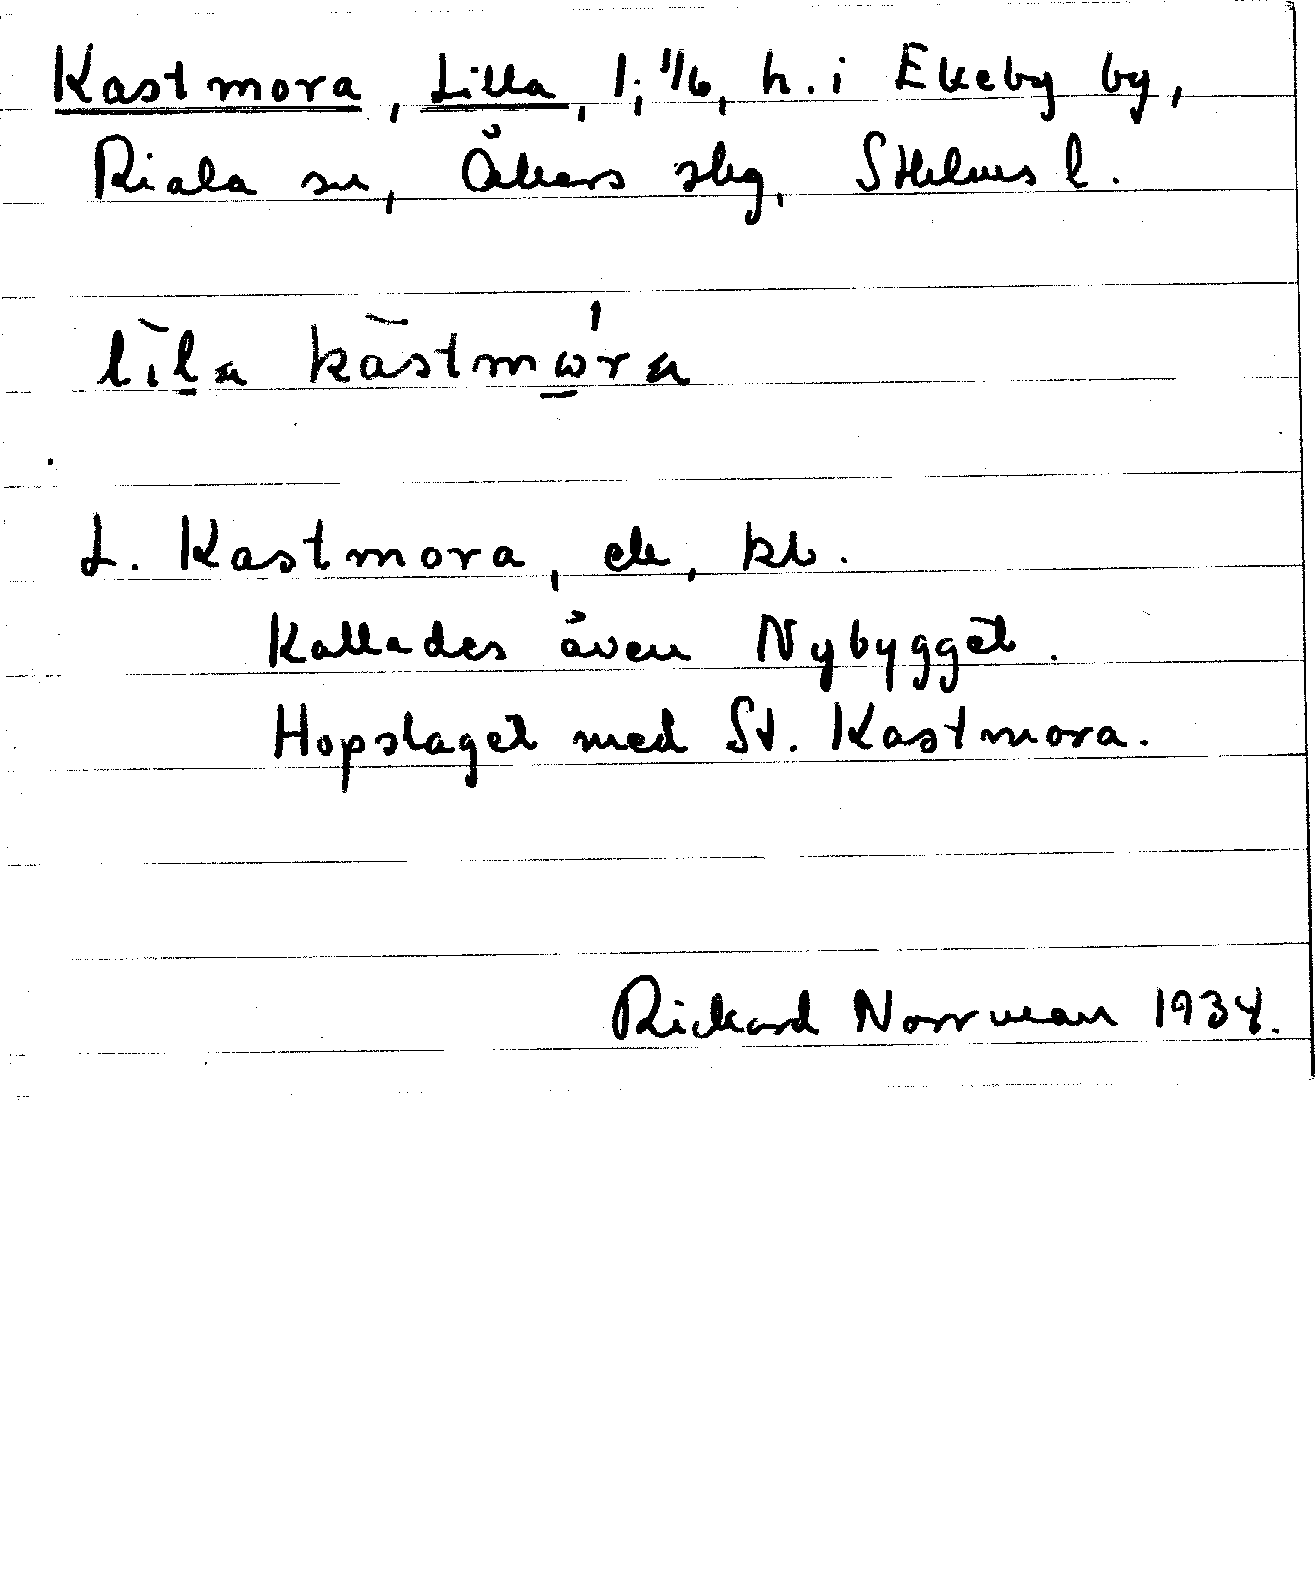 Kastmora, Lilla, 1; 1/6, h. i Ekeby by,
Riala sn, Åkers skg, Sthlms l.
lila kastmora
L. Kastmora, ek, kb.
Kallades även Nybygget.
Hopslaget med St. Kastmora.
Rickard Norrman 1934.